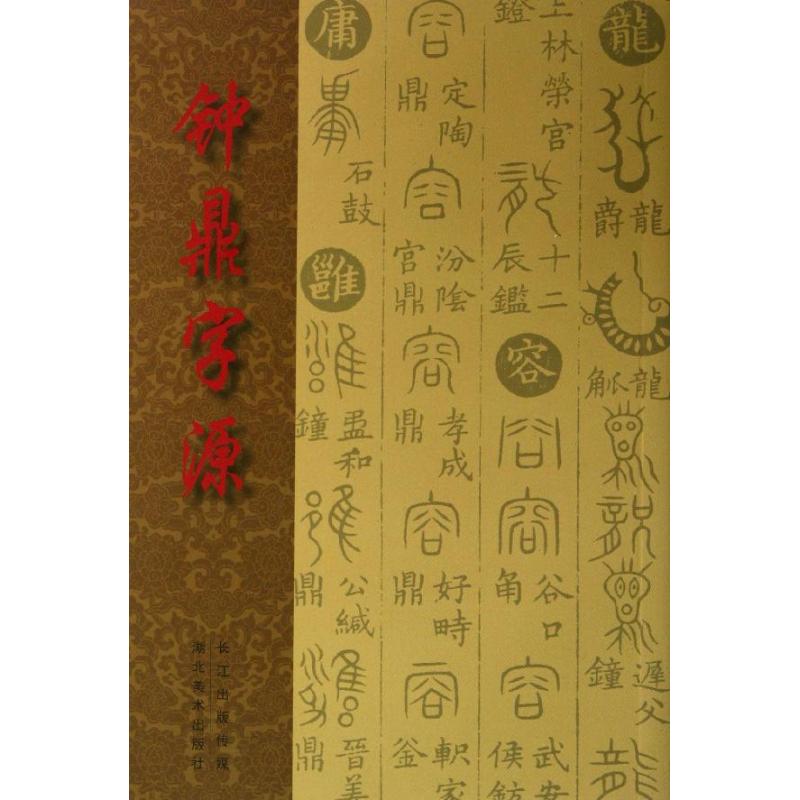 钟鼎字源
长江出版传媒
湖北美术出版社
龍
龍爵
龍觚
遲父鐘
上林榮宮鐙
十二辰鑑
容
谷口角
武安侯鈁
定陶鼎
汾陰宮鼎
孝成鼎
好畤鼎
軹家釜
庸
石鼓
雝
盄和鐘
公緘鼎
晉姜鼎